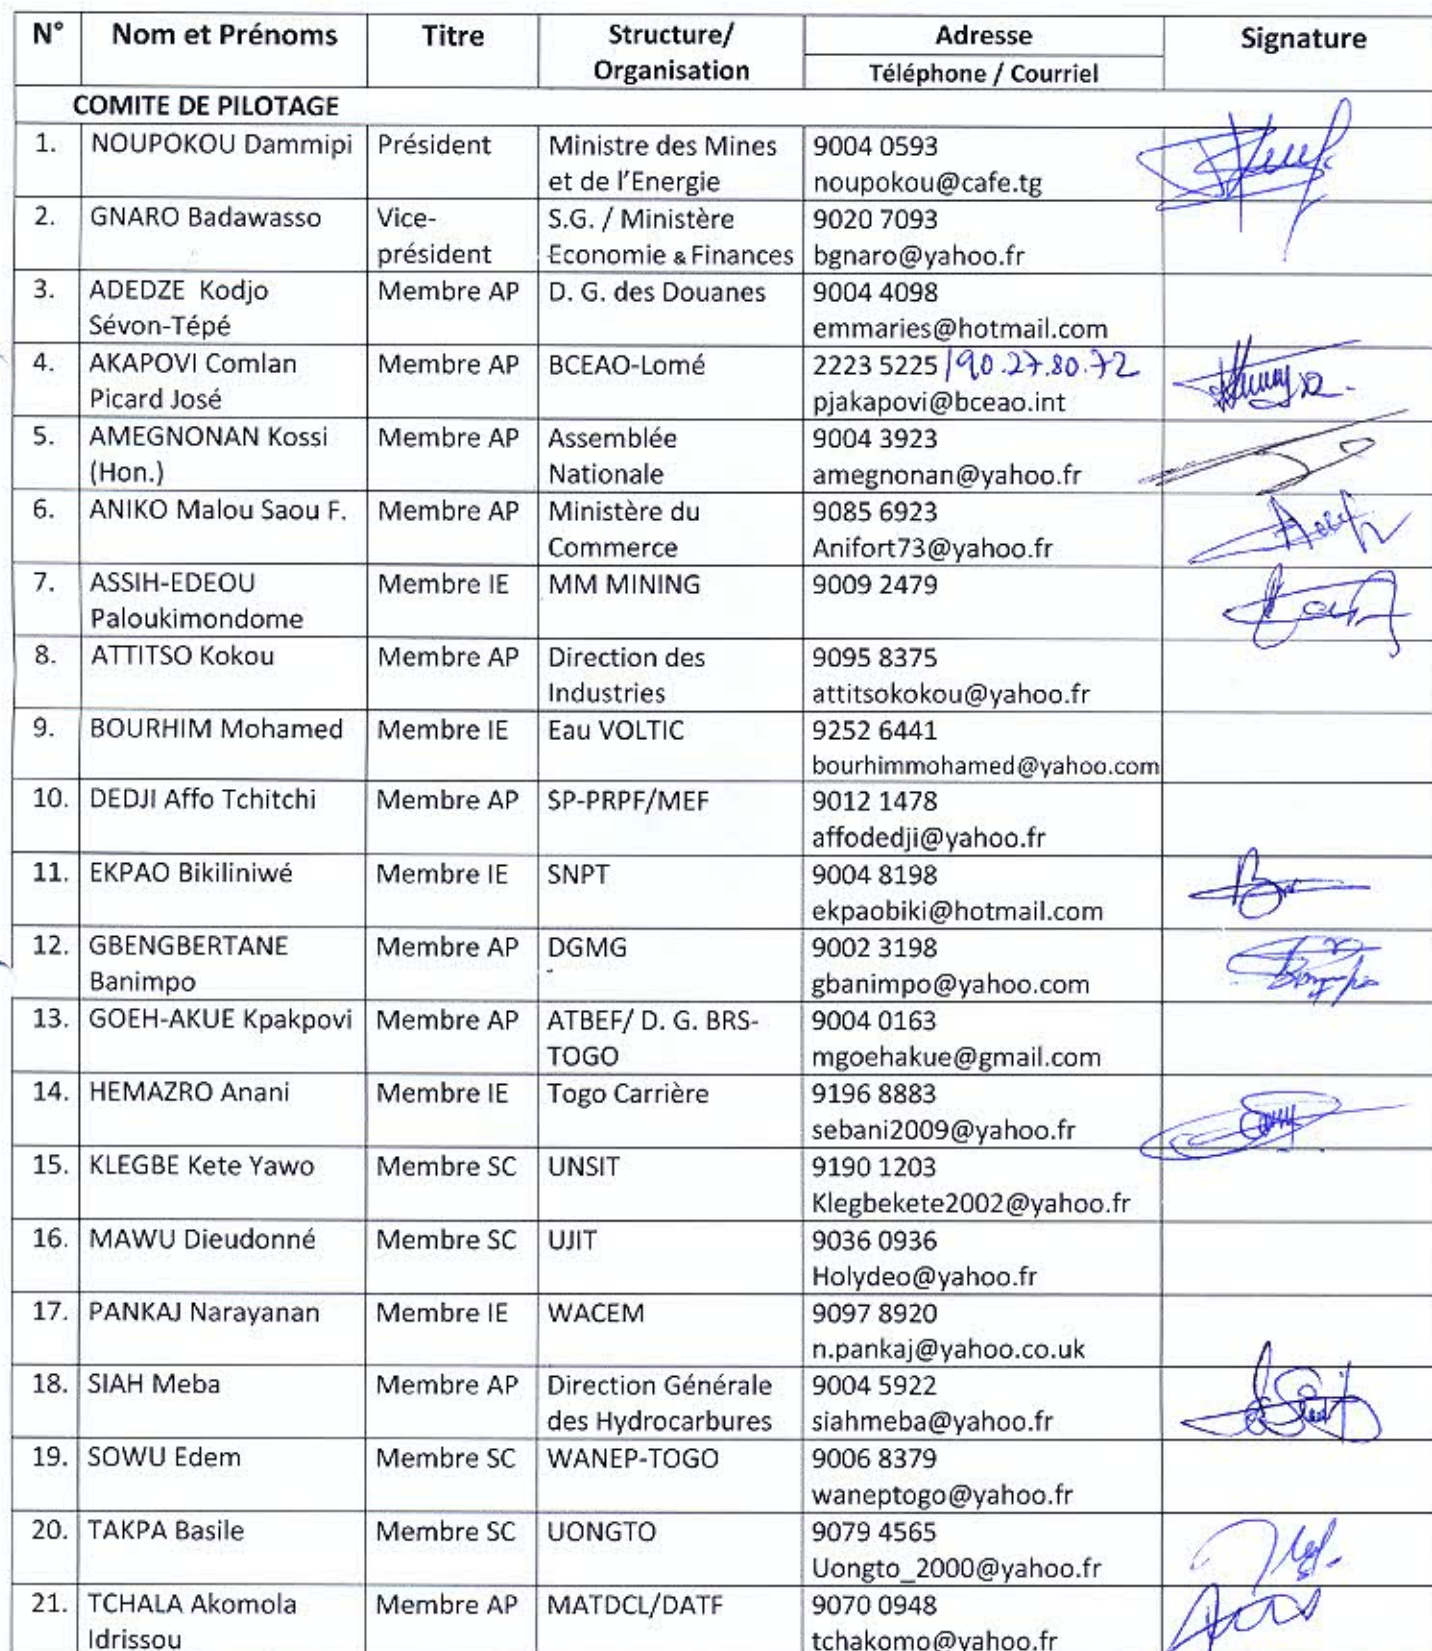 N° Nom et Prénoms Titre Structure/ Organisation Adresse Signature
Téléphone / Courriel
COMITE DE PILOTAGE
1. NOUPOKOU Dammipi Président Ministre des Mines 9004 0593
et de l'Energie noupokou@cafe.tg
2. GNARO Badawasso Vice- S.G. / Ministère 9020 7093
président Economie & Finances bgnaro@yahoo.fr
3. ADEDZE Kodjo Membre AP D. G. des Douanes 9004 4098
Sévon-Tépé emmaries@hotmail.com
4. AKAPOVI Comlan Membre AP BCEAO-Lomé 2223 5225 /90.27.80.72
Picard José pjakapovi@bceao.int
5. AMEGNONAN Kossi Membre AP Assemblée 9004 3923
(Hon.) Nationale amegnonan@yahoo.fr
6. ANIKO Malou Saou F. Membre AP Ministère du 9085 6923
Commerce Anifort73@yahoo.fr
7. ASSIH-EDEOU Membre IE MM MINING 9009 2479
Paloukimondome
8. ATTITSO Kokou Membre AP Direction des 9095 8375
Industries attitsokokou@yahoo.fr
9. BOURHIM Mohamed Membre IE Eau VOLTIC 9252 6441
bourhimmohamed@yahoo.com
10. DEDJI Affo Tchitchi Membre AP SP-PRPF/MEF 9012 1478
affodedji@yahoo.fr
11. EKPAO Bikiliniwé Membre IE SNPT 9004 8198
ekpaobiki@hotmail.com
12. GBENGBERTANE Membre AP DGMG 9002 3198
Banimpo gbanimpo@yahoo.com
13. GOEH-AKUE Kpakpovi Membre AP ATBEF/ D. G. BRS- 9004 0163
TOGO mgoehakue@gmail.com
14. HEMAZRO Anani Membre IE Togo Carrière 9196 8883
sebani2009@yahoo.fr
15. KLEGBE Kete Yawo Membre SC UNSIT 9190 1203
Klegbekete2002@yahoo.fr
16. MAWU Dieudonné Membre SC UJIT 9036 0936
Holydeo@yahoo.fr
17. PANKAJ Narayanan Membre IE WACEM 9097 8920
n.pankaj@yahoo.co.uk
18. SIAH Meba Membre AP Direction Générale 9004 5922
des Hydrocarbures siahmeba@yahoo.fr
19. SOWU Edem Membre SC WANEP-TOGO 9006 8379
waneptogo@yahoo.fr
20. TAKPA Basile Membre SC UONGTO 9079 4565
Uongto_2000@yahoo.fr
21. TCHALA Akomola Membre AP MATDCL/DATF 9070 0948
Idrissou tchakomo@yahoo.fr